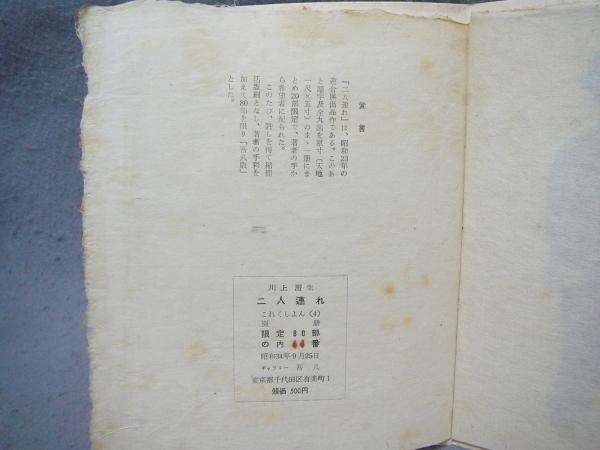 覚書
『二人連れ』は、昭和23年の
と題字及全九図を原寸(天地
一尺×五寸)のまゝ一冊にま
とめ20部限定で、著者の手か
ら希望者に配られた。
このたび、許しを得て
活版刷となし、著者の手彩を
加えて80部を限り『吾八版』
とした。
川上澄生
二人連れ
これくしよん〈4〉
別冊
限定80部
の内44番
昭和34年9月25日
ギャラリー 吾八
東京都千代田区有楽町1
頒価 500円